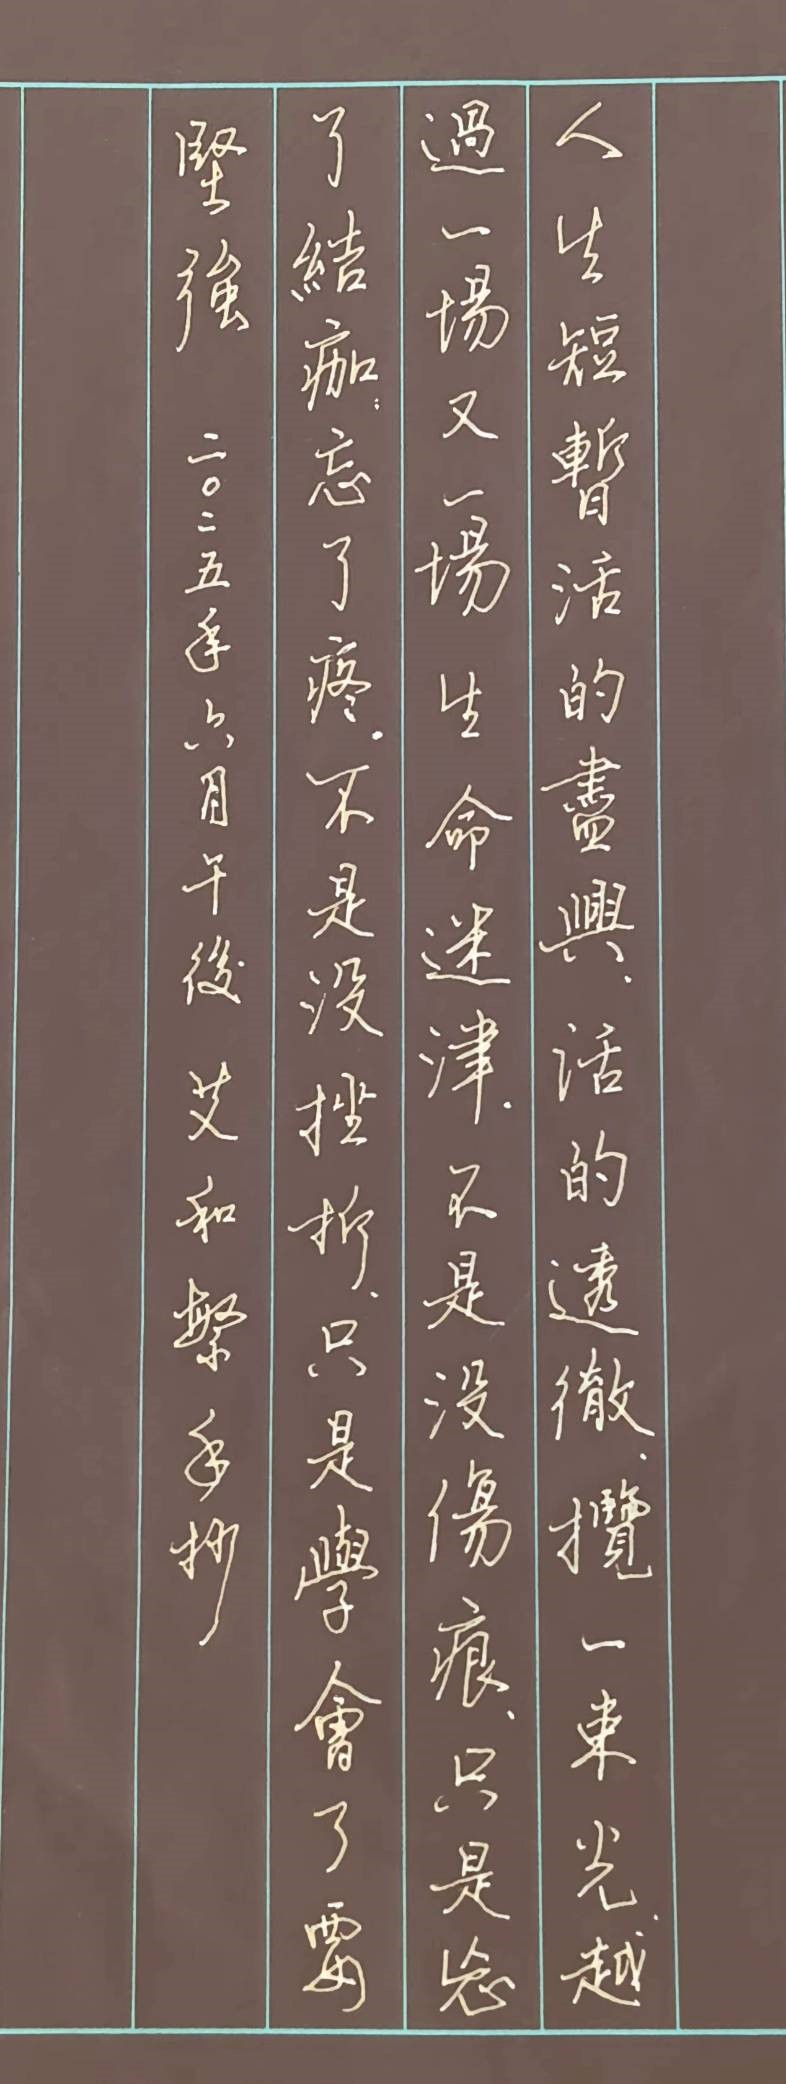 人生短暫活的盡興、活的透徹、攬一束光、越
過一場又一場生命迷津.不是没傷痕、只是忘
了結痂;忘了疼.不是没挫折、只是學會了要
堅強 二〇二五年六月午後 艾和繁手抄